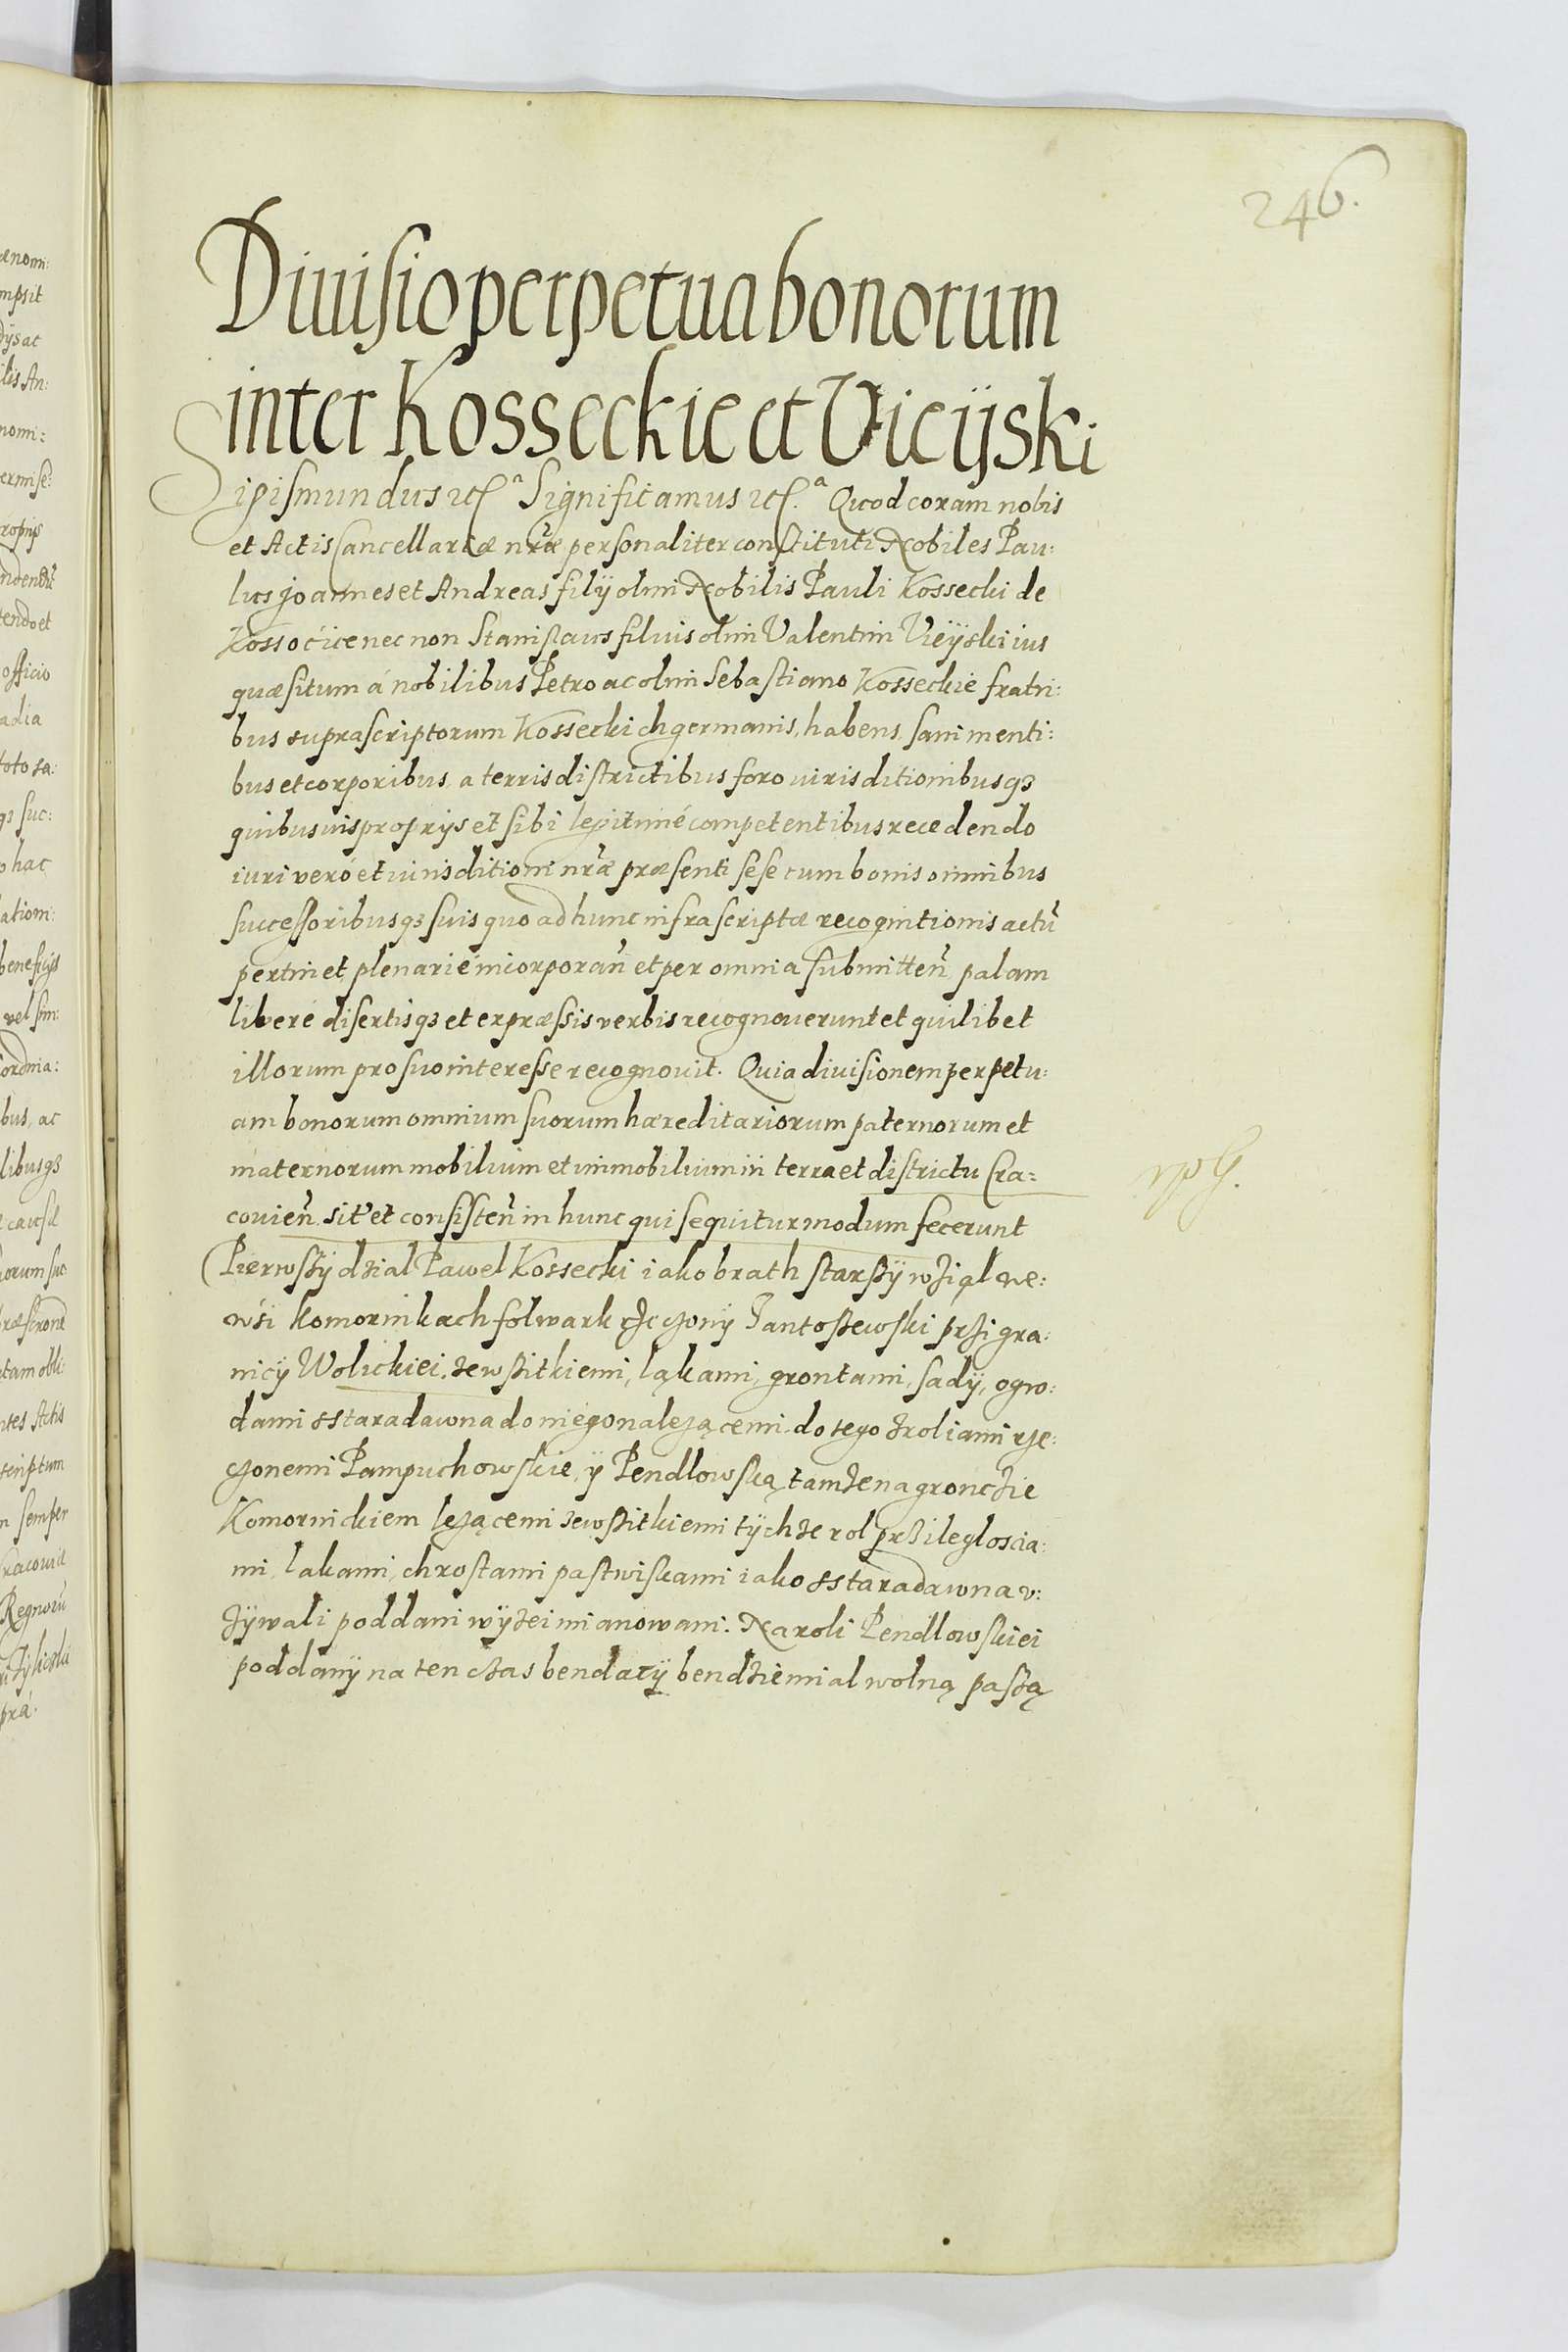 246.
Diuisio perpetua bonorum
inter Kosseckie et Vieÿski
Sigismundus etc. Significamus etc. Quod coram nobis
et Actis Cancellariæ nr̃æ personaliter constituti Nobiles Pau:
lus Joannes et Andreas filÿ olim Nobilis Pauli Kossecki de
Kossocice nec non Stanislaus filius olim Valentini Vieÿski ius
quæsitum á nobilibus Petro ac olim Sebastiano Kosseckie fratri:
bus suprascriptorum Kosseckich germanis, habens, sani menti:
bus et corporibus a terris districtibus foro iurisditionibusqꝫ
quibusuis proprÿs et sibi legitimé competentibus recedendo
iuri veró et iurisditioni nr̃æ præsenti sese cum bonis omnibus
successoribusqꝫ suis quo ad hunc infrascriptæ recognitionis actũ
pertinet plenarié incorporañ et per omnia submitteñ palam
liberé disertisqꝫ et expræssis verbis recognouerunt et quilibet
illorum pro suo interesse recognouit. Quia diuisionem perpetu:
am bonorum omnium suorum hæreditariorum paternorum et
maternorum mobilium et immobilium in terra et districtu Cra:
couieñ. sit' et consisteñ in hunc qui sequitur modum fecerunt
Pierwszÿ dział Pawel Kossecki iako brath starszÿ wziął we:
wśi Komornikach folwark rzeczonÿ Jantoszewski przi gra:
nicÿ Wolickiei. zewszitkiemi, ląkami, grontami, sadÿ, ogro:
dami sstaradawna do niego nalezącemi. do tego zroliami rze:
czonemi Pampuchowskie, ÿ Pendlowską tamze na gronczie
Komornickiem lezącemi zewszitkiemi tÿchze rol przileglościa:
mi, lakami, chrostami pastwiskami iako sstaradawna v:
zÿwali poddani wÿzei mianowani. Na roli Pendlowskiei
poddanÿ na ten czas bendacÿ bendzie mial wolną paszą